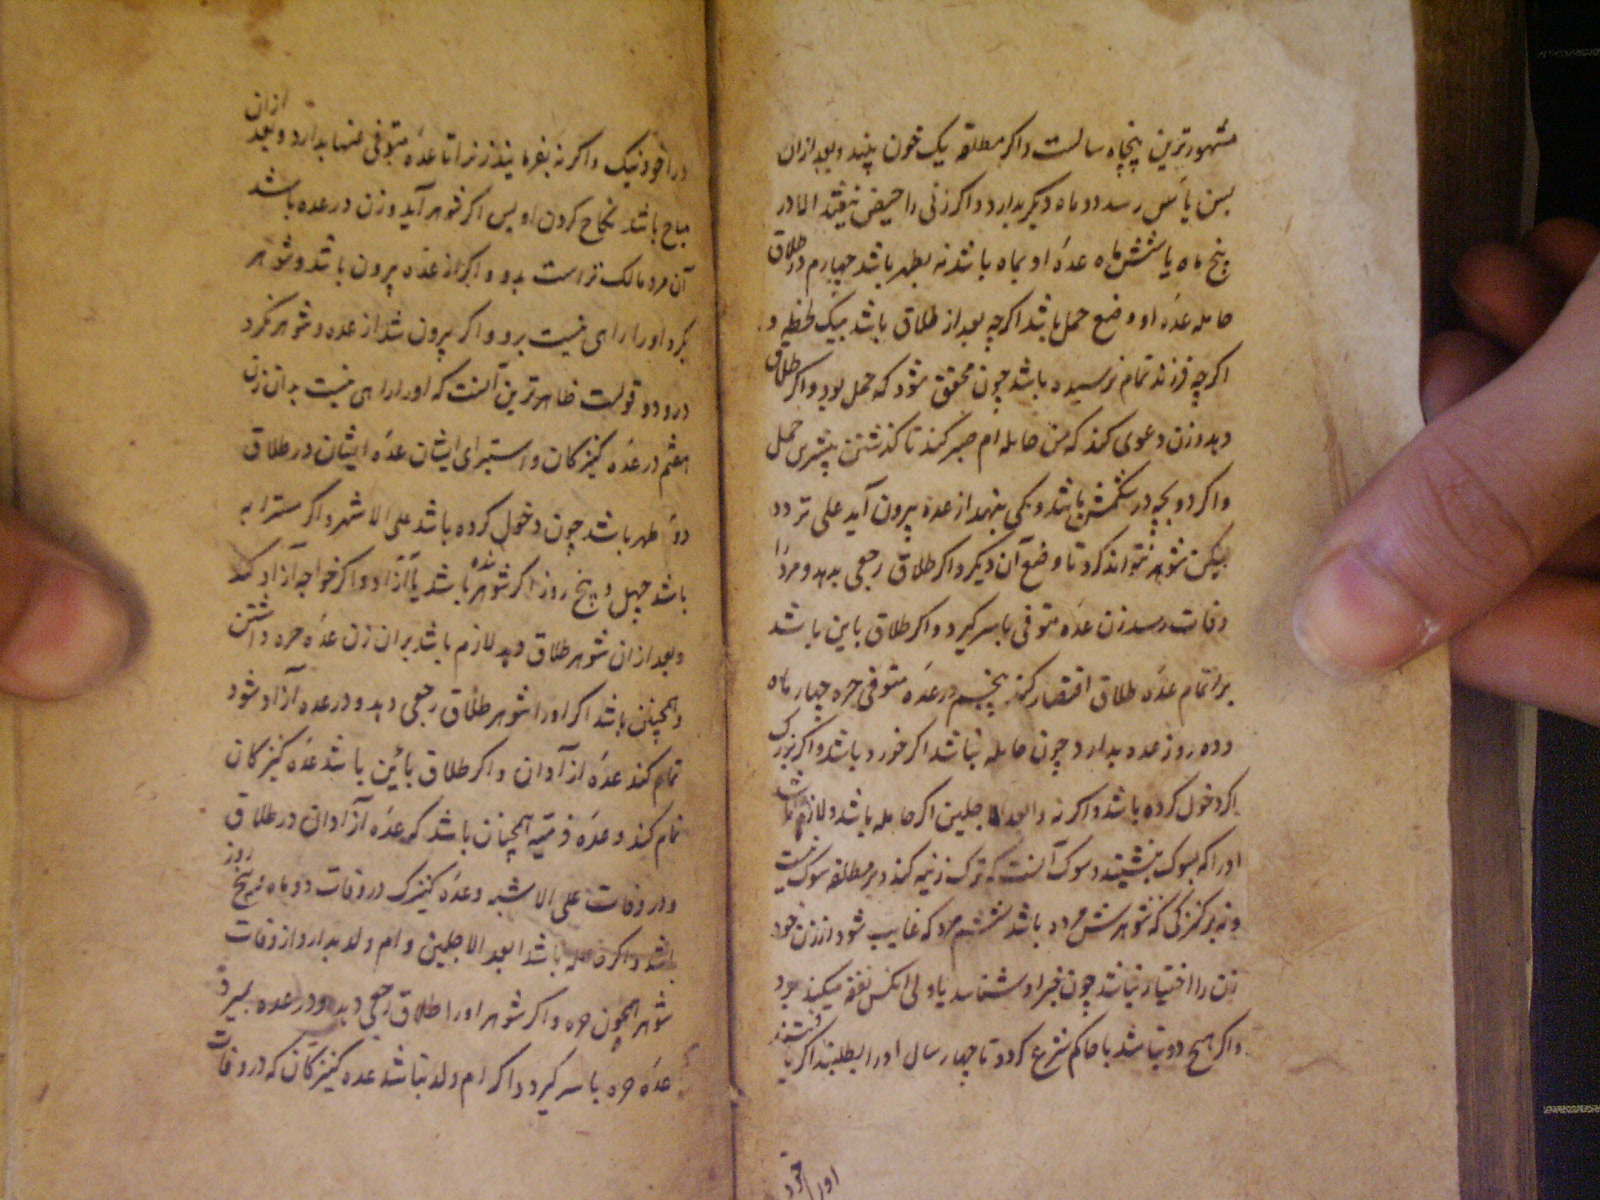 مشهورترین پنجاه سالست و اکر مطلقه یک خون بیند و بعد ازان
بسن یاس رسد دو ماه دیکر بدارد و اکر زنی را حیض نیفتد الا در
پنج ماه یا شش ماه عدهٔ او بماه باشد نه بطهر باشد چهارم در طلاق
حامله عدهٔ او وضع حمل باشد اکرچه بعد از طلاق باشد بیک لحظه و
اکرچه فرزند تمام نرسیده باشد چون محقق شود که حمل بود و اکر طلاق
دهد و زن دعوی کند که من حامله ام صبر کند تا کذشتن بیشترین حمل
و اکر دو بچه در شکمش باشد و یکی بنهد از عده بیرون آید علی تردد
لیکن شوهر نتواند کرد تا وضع آن دیکر و اکر طلاق رجعی بدهد و مرد را
وفات رسد زن عدهٔ متوفی باسر کیرد و اکر طلاق باین باشد
بر اتمام عدهٔ طلاق اقتصار کند پنجم در عدهٔ متوفی حره چهار ماه
و ده روز عده بدارد چون حامله نباشد اکر خورد باشد و اکر بزرک
اکر دخول کرده باشد و اکر نه و ابعد الاجلین اکر حامله باشد و لازم باشد
او را که بسوک بنشیند و سوک آنست که ترک زینه کند و بر مطلقه سوک نیست
و نه بر کنیزکی که شوهرش مرده باشد ششم مرد که غایب شود از زن خود
زن را اختیار نباشد چون خبر او شناسد یا ولی انکس نفقه میکند برو
و اکر هیچ دو نباشد با حاکم شرع کردد تا چهار سال او را بطلبند اکر یافتند
او را خود
در اخود نیک و اکر نه بفرمایند زنرا تا عدهٔ متوفی عنها بدارد و بعد ازان
مباح باشد نکاح کردن او پس اکر شوهر آید و زن در عده باشد
آن مرد مالک تر است بدو و اکر از عده بیرون باشد و شوهر
بکرد او را رای نیست برو و اکر بیرون شد از عده و شوهر نکرد
درو دو قولست ظاهرترین آنست که او را راهی نیست بدان زن
هفتم در عدهٔ کنیزکان و استبرای ایشان عدهٔ ایشان در طلاق
دو طهر باشد چون دخول کرده باشد علی الاشهر و اکر مسترابه
باشد چهل و پنج روز اکر شوهر بنده باشد یا آزاد و اکر خواجه آزاد کند
و بعد ازان شوهر طلاق دهد لازم باشد بران زن عدهٔ حره داشتن
و همچنین باشد اکر او را شوهر طلاق رجعی دهد و در عده آزاد شود
تمام کند عدهٔ از آدان و اکر طلاق بائین باشد عدهٔ کنیزکان
تمام کند و عدهٔ ذمیه همچنان باشد که عدهٔ آزادان در طلاق
و در وفات علی الاشبه و عدهٔ کنیزک در وفات دو ماه و پنج روز
باشد و اکر حامله باشد ابعد الاجلین و ام ولد بدارد از وفات
شوهر همچون حره و اکر شوهر او را طلاق رجعی دهد و در عده بمیرد
عدهٔ حره باسر کیرد و اکر ام ولد نباشد عدهٔ کنیزکان که در وفات